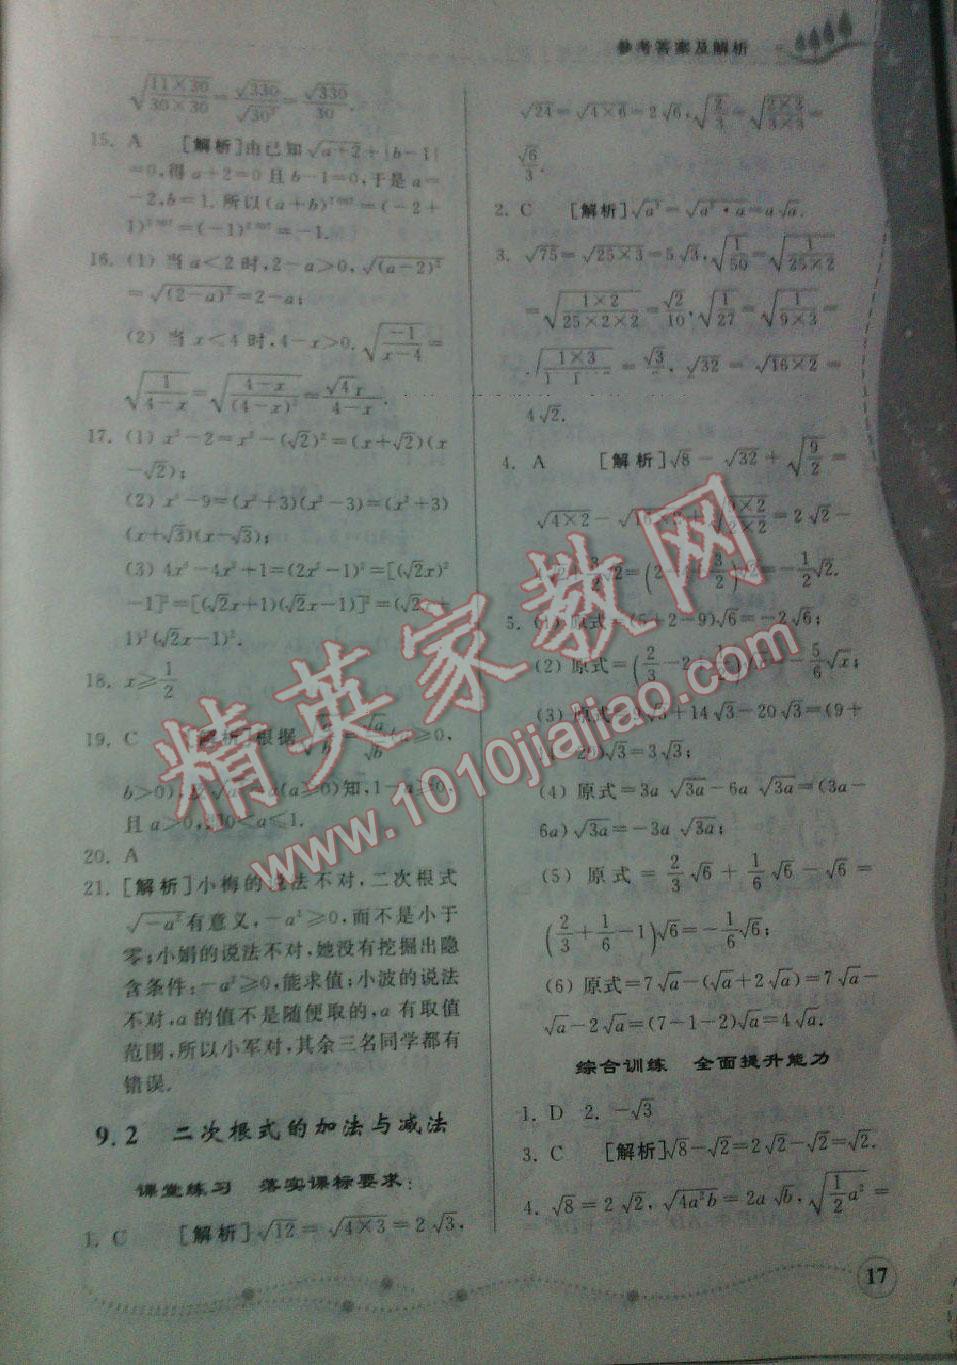 参考答案及解析
√(11×30)/(30×30)=√330/√30²=√330/30.
15. A [解析]由已知√a+2+|b-1|
=0,得a+2=0且b-1=0,于是a=
-2,b=1.所以(a+b)²⁰⁰⁷=(-2+
1)²⁰⁰⁷=(-1)²⁰⁰⁷=-1.
16. (1) 当a<2时,2-a>0,√(a-2)²
=√(2-a)²=2-a;
(2) 当x<4时,4-x>0.√(-1/(x-4))=
√(1/(4-x))=√((4-x)/(4-x)²)=
17. (1) x²-2=x²-(√2)²=(x+√2)(x
-√2);
(2) x⁴-9=(x²+3)(x²-3)=(x²+3)
(x+√3)(x-√3);
(3) 4x⁴-4x²+1=(2x²-1)²=[(√2x)²
-1]²=[(√2x+1)(√2x-1)]²=(√2x+
1)²(√2x-1)².
18. x≥1/2
19. C [解析]根据√(a/b)=√a/√b(a≥0,
b>0),及 (a≥0)知,1-a≥0,
且a>0,即0<a≤1.
20. A
21. [解析]小梅的说法不对,二次根式
√-a²有意义,-a²≥0,而不是小于
零;小娟的说法不对,她没有挖掘出隐
含条件:-a²≥0,能求值;小波的说法
不对,a的值不是随便取的,a有取值
范围,所以小军对,其余三名同学都有
错误.
9.2 二次根式的加法与减法
课堂练习 落实课标要求:
1. C [解析]√12=√4×3=2√3,
√24=√4×6=2√6,√(2/3)=√((2×3)/(3×3))=
√6/3.
2. C [解析]√a³=√a²·a=a√a.
3. √75=√25×3=5√3,√(1/50)=√(1/(25×2))
=√((1×2)/(25×2×2))=√2/10,√(1/27)=√(1/(9×3))=
√32=√16×2=
4√2.
4. A [解析]√8-√32+√(9/2)=
√4×2-
=2√2-
=-1/2√2.
5. (1) 原式=(5+2-9)√6=-2√6;
(2) 原式=
(3) 原式= +14√3-20√3=(9+
14-20)√3=3√3;
(4) 原式=3a√3a-6a√3a=(3a-
6a)√3a=-3a√3a;
(5) 原式=2/3√6+1/6√6-√6=
(2/3+1/6-1)√6=-1/6√6;
(6) 原式=7√a-(√a+2√a)=7√a-
√a-2√a=(7-1-2)√a=4√a.
综合训练 全面提升能力
1. D 2. -√3
3. C [解析]√8-√2=2√2-√2=√2.
4. √8=2√2,√4a²b=2a√b,√(1/2a²)=
17
精英家教网
www.1010jiajiao.com